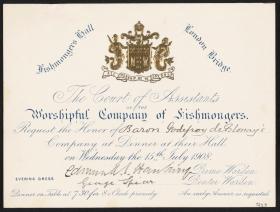 Fishmongers Hall
London Bridge.
The Court of Assistants
OF THE
Worshipful Company of Fishmongers,
Request the Honor of Baron Godefroy de Blonay's
Company at Dinner at their Hall
on Wednesday the 15th July 1908.
Prime Warden
George
Renter Warden
EVENING DRESS
Dinner on Table at 7.30 for 8 o'Clock precisely
An early Answer is requested